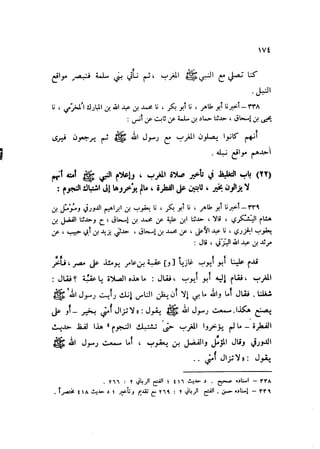 ١٧٤
كنا نصلي مع النبي ﷺ المغرب ، ثم نأتي بني سلمة فنبصر مواقع
النبل .
٣٣٨ – أخبرنا أبو طاهر ، نا أبو بكر ، نا محمد بن عبد الله بن المبارك المخرّمي ، نا
يحيى بن إسحاق ، حدثنا حماد بن سلمة عن ثابت عن أنس :
أنهم كانوا يصلون المغرب مع رسول الله ﷺ ثم يرجعون فيرى
أحدهم مواقع نبله .
(٢٢) باب التغليظ في تأخير صلاة المغرب ، وإعلام النبي ﷺ أمته أنهم
لا يزالون بخير ، ثابتين على الفطرة ، مالم يؤخروها إلى اشتباك النجوم :
٣٣٩ – أخبرنا أبو طاهر ، نا أبو بكر ، نا يعقوب بن ابراهيم الدورقي ومؤمل بن
هشام اليشكري ، قالا ، حدثنا ابن علية عن محمد بن إسحاق ؛ ح وحدثنا الفضل بن
يعقوب الجزري ، نا عبد الأعلى ، عن محمد بن إسحاق ، حدثني يزيد بن أبي حبيب ، عن
مرثد بن عبد الله اليزني ، قال :
قدم علينا أبو أيوب غازياً [و] عقبة بن عامر يومئذ على مصر ، فأخّر
المغرب ، فقام إليه أبو أيوب ، فقال : ما هذه الصلاة يا عقبة ؟ فقال :
شغلنا . فقال أما والله ما بي إلا أن يظن الناس إنك رأيت رسول الله ﷺ
يصنع هكذا . سمعت رسول الله ﷺ يقول : «لا تزال أمتي بخير – أو على
الفطرة – ما لم يؤخروا المغرب حتى تشتبك النجوم» هذا لفظ حديث
الدورقي وقال المؤمل والفضل بن يعقوب ، أما سمعت رسول الله ﷺ
يقول : لا تزال أمتي . .
٣٣٨ – إسناده صحيح . د حديث ٤١٦ ؛ الفتح الرباني ٢ : ٢٦٦ .
٣٣٩ – إسناده حسن . الفتح الرباني ٢ : ٢٦٩ مع تقديم وتأخير ؛ د حديث ٤١٨ مختصراً .